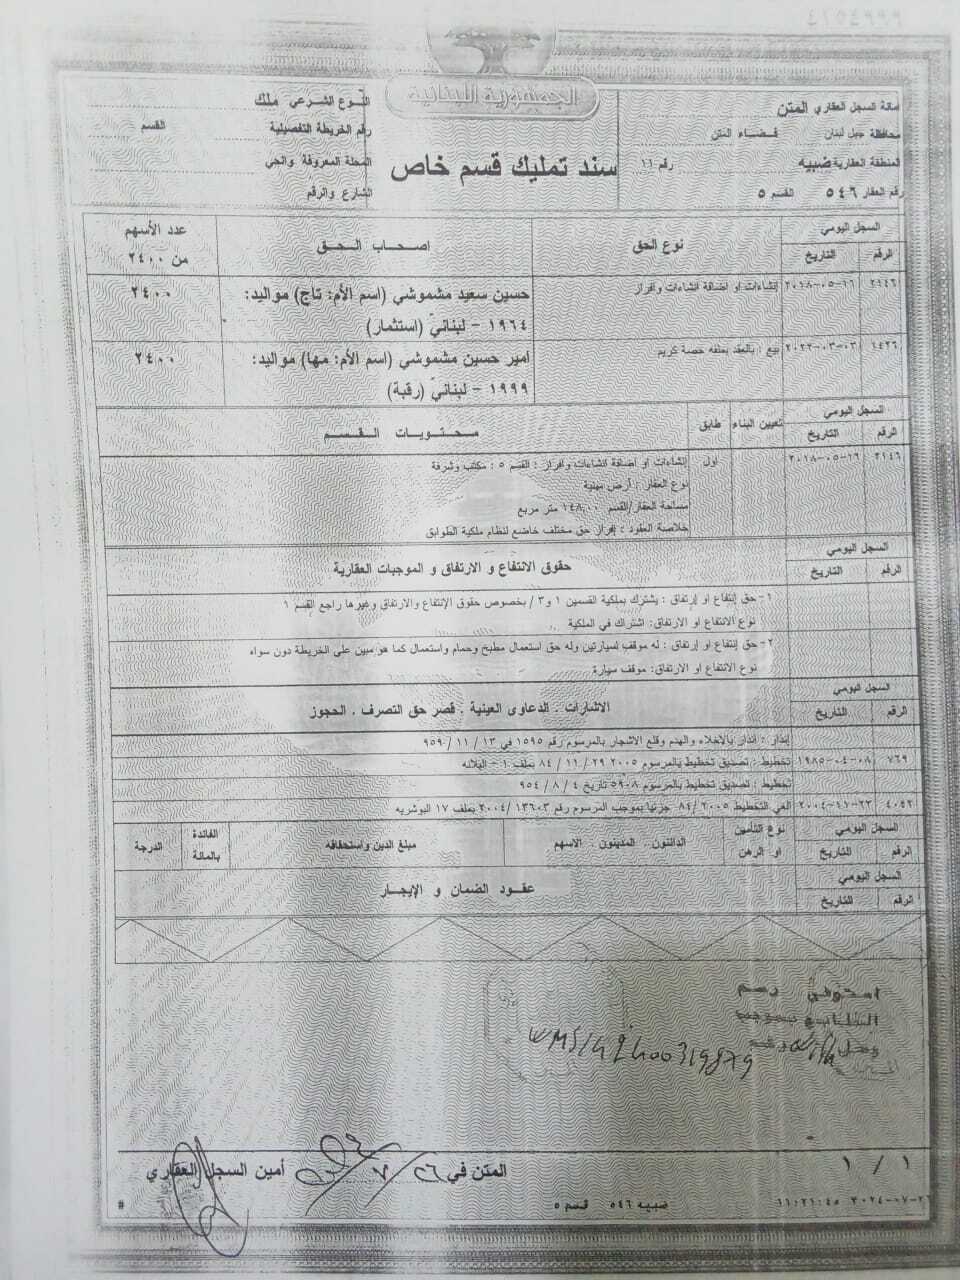 الجمهورية اللبنانية
أمانة السجل العقاري المتن
محافظة جبل لبنان قضاء المتن
المنطقة العقارية ضبيه رقم ١١
رقم العقار ٥٤٦ القسم ٥
سند تمليك قسم خاص
النوع الشرعي ملك
رقم الخريطة التفصيلية القسم
المحلة المعروفة والحي
الشارع والرقم
السجل اليومي
الرقم التاريخ
نوع الحق
اصحاب الحق
عدد الأسهم
من ٢٤٠٠
٢١٤٦ ١٦-٠٥-٢٠١٨ إنشاءات او اضافة انشاءات وافراز
حسين سعيد مشموشي (اسم الأم: تاج) مواليد:
١٩٦٤ - لبناني (استثمار)
٢٤٠٠
١٤٢٦ ٠٣-٠٣-٢٠٢٢ بيع : بالعقد بملفه حصة كريم
أمير حسين مشموشي (اسم الأم: مها) مواليد:
١٩٩٩ - لبناني (رقبة)
٢٤٠٠
السجل اليومي
الرقم التاريخ
تعيين البناء
طابق
محتويات القسم
٢١٤٦ ١٦-٠٥-٢٠١٨ أول إنشاءات او اضافة انشاءات وافراز : القسم ٥ : مكتب وشرفة
نوع العقار : أرض مبنية
مساحة العقار/القسم ١٤٨,٠٠ متر مربع
خلاصة العقود : إفراز حق مختلف خاضع لنظام ملكية الطوابق
السجل اليومي
الرقم التاريخ
حقوق الانتفاع و الارتفاق و الموجبات العقارية
١- حق إنتفاع او إرتفاق : يشترك بملكية القسمين ١ و٣ / بخصوص حقوق الإنتفاع والارتفاق وغيرها راجع القسم ١
نوع الانتفاع او الارتفاق: اشتراك في الملكية
٢- حق إنتفاع او إرتفاق : له موقف لسيارتين وله حق استعمال مطبخ وحمام واستعمال كما هو مبين على الخريطة دون سواه
نوع الانتفاع او الارتفاق: موقف سيارة
السجل اليومي
الرقم التاريخ
الاشارات . الدعاوى العينية . قصر حق التصرف . الحجوز
إنذار : انذار بالاخلاء والهدم وقلع الاشجار بالمرسوم رقم ١٥٩٥ في ١٣ / ١١ / ٩٥٩
٧٦٩ ٠٨-٠٤-١٩٨٥ تخطيط : تصديق تخطيط بالمرسوم ٢٠٠٥ ٢٩ / ١١ / ٨٤ بملف
تخطيط : تصديق تخطيط بالمرسوم ٥٩٠٨ تاريخ ٤ / ٨ / ٩٥٤
٤٠٤٢ ٢٢-١١-٢٠٠٤ الغي التخطيط ٢٠٠٥ /٨٤ جزئيا بموجب المرسوم رقم ١٣٦٠٣ /٢٠٠٤ بملف ١٧ البوشريه
السجل اليومي
الرقم التاريخ
نوع التأمين
او الرهن
الدائنون . المدينون . الاسهم
مبلغ الدين واستحقاقه
الفائدة
بالمائة
الدرجة
السجل اليومي
الرقم التاريخ
عقود الضمان و الإيجار
استوفي رسم
الطابع بموجب
WMS142400319879
١ / ١
المتن في ٢٦/٧/
أمين السجل العقاري
١١:٢١:٤٥
ضبيه ٥٤٦ قسم ٥
#